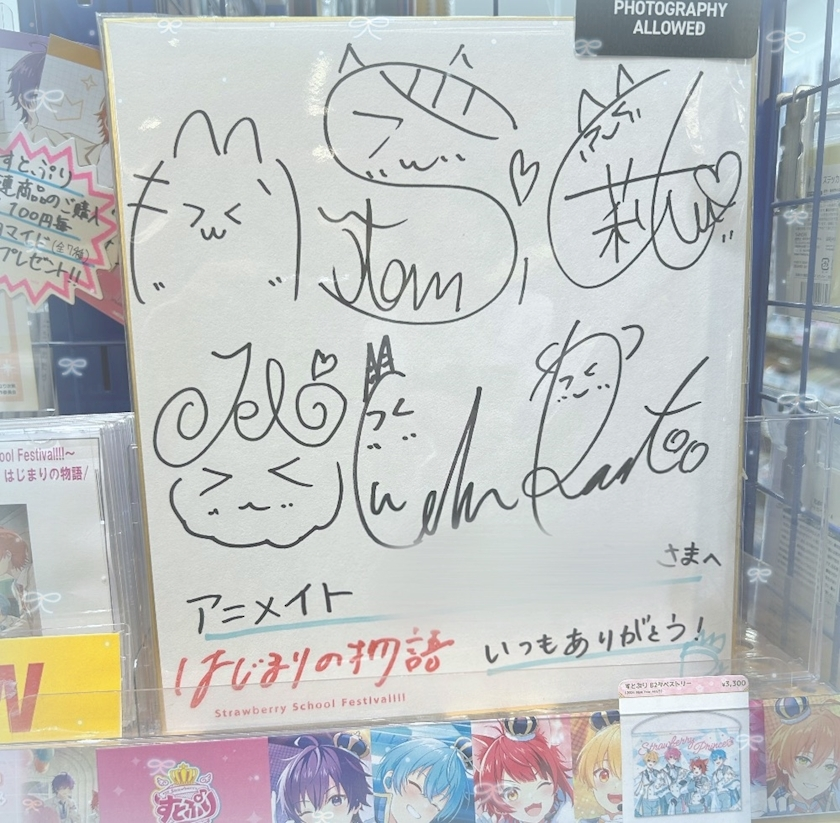 PHOTOGRAPHY
ALLOWED
すとぷり
連商品のご購入
700円毎
ロマイド(全7種)
プレゼント!!
Jel
莉
さまへ
アニメイト
いつもありがとう!
はじまりの物語
Strawberry School Festival!!!
ool Festival!!!~
はじまりの物語/
すとぷり B2タペストリー
¥3,300
Strawberry Prince
すとぷり